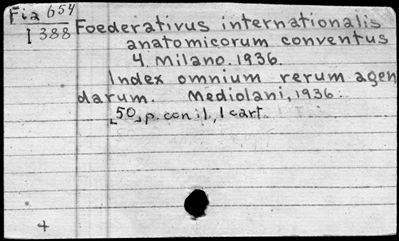 Fia 654
I 388
Foederativus internationalis
anatomicorum conventus
4. Milano. 1936.
Index omnium rerum agen
darum. Mediolani, 1936.
[50] p. con il, 1 cart.
4